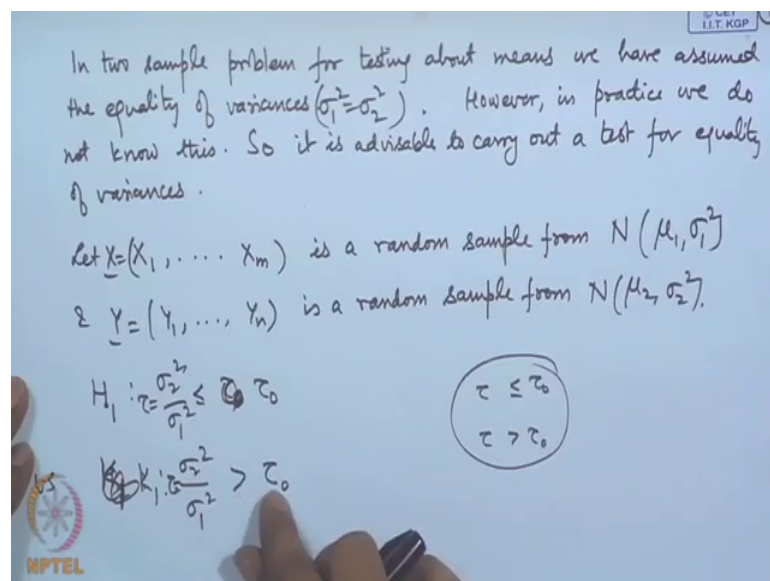 © CET
I.I.T. KGP
In two sample problem for testing about means we have assumed
the equality of variances (σ₁²=σ₂²). However, in practice we do
not know this. So it is advisable to carry out a test for equality
of variances.
Let X=(X₁, .... Xₘ) is a random sample from N(μ₁, σ₁²)
& Y=(Y₁, ..., Yₙ) is a random sample from N(μ₂, σ₂²).
H₁: τ=σ₂²/σ₁² ≤ τ₀
τ ≤ τ₀
τ > τ₀
vs K₁: τ=σ₂²/σ₁² > τ₀
NPTEL